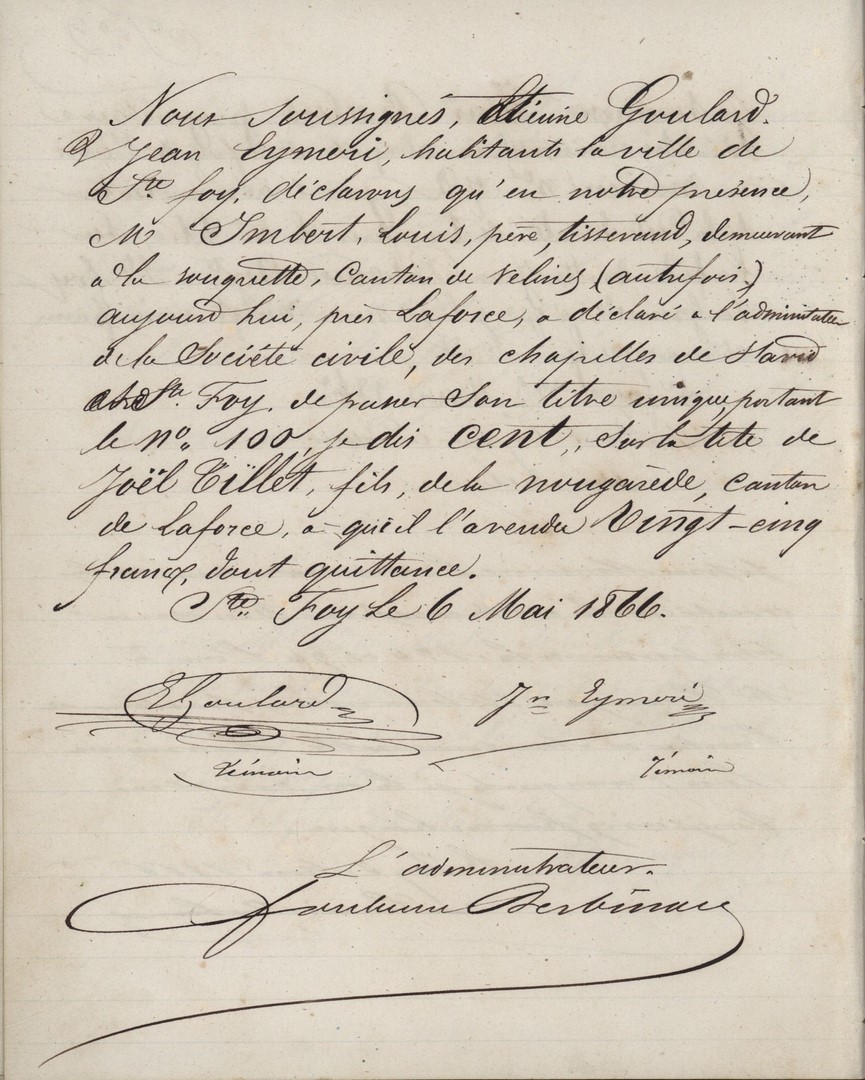 Nous soussignés, Etienne Goulard.
& Jean Eymeri, habitants la ville de
Ste foy, déclarons qu'en notre présence,
M Imbert, Louis, père, tisserand, demeurant
a la rouquette, Canton de Velines (autrefois)
aujourd'hui, près Laforce, a déclaré a l'administrateur
de la Société civile, des chapelles de
Ste. Foy, de passer son titre unique, portant
le no. 100, je dis cent, sur la tête de
Joël Tillet, fils, de la nougarède, canton
de Laforce, a qui il l'a vendu Vingt-cinq
francs, dont quittance.
Ste. Foy Le 6 Mai 1866.
EGoulard Jn Eymeri
témoin Témoin
L'administrateur.